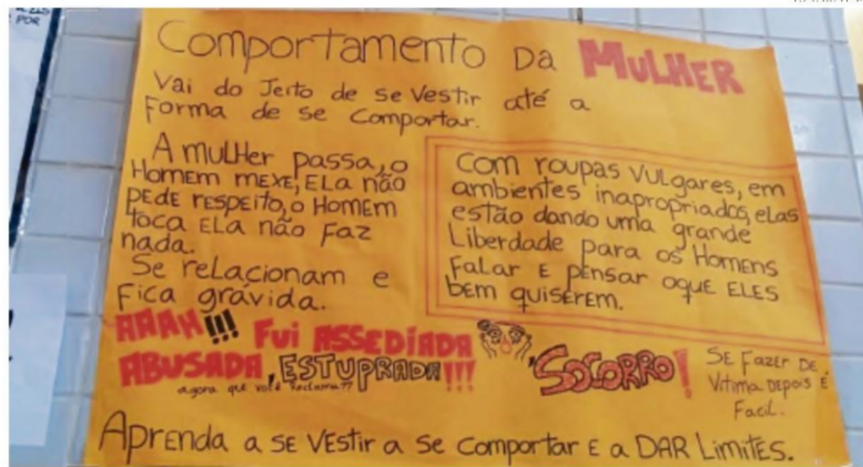 POR
Comportamento Da MULHER
Vai do Jeito de se Vestir até a
Forma de se Comportar.
A mulHer passa, o
Homem mexe, Ela não
pede respeito, o Homem
toca Ela não Faz
nada.
Se relacionam e
Fica grávida.
Com roupas Vulgares, em
ambientes inapropriados, elas
estão dando uma grande
Liberdade para os Homens
Falar E pensar oque ELES
bem quiserem.
AAAH!!! Fui ASSEDIADA
ABUSADA, ESTUPRADA!!!
agora que você reclama??
, SOCORRO!
SE Fazer DE
Vitima Depois É
Facil.
Aprenda a SE VEstir a Se Comportar E a DAR LimiTES.